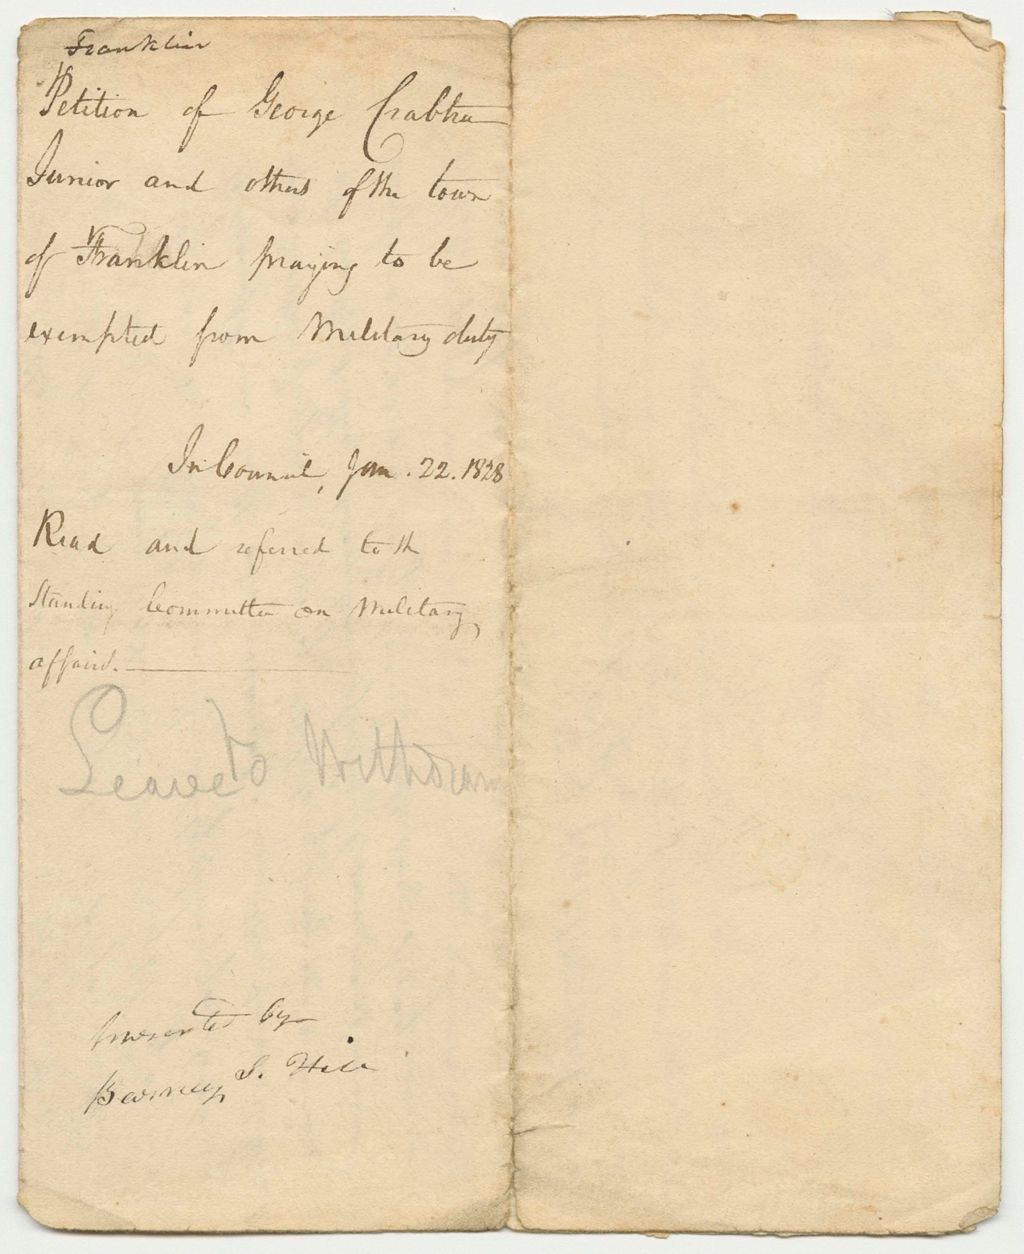 Franklin
Petition of George Crabtree
Junior and others of the town
of Franklin praying to be
exempted from Military duty
In Council, Jan. 22. 1828
Read and referred to th
Standing Committee on Military
affairs.
Leave to Withdraw
presented by
Barney S. Hill